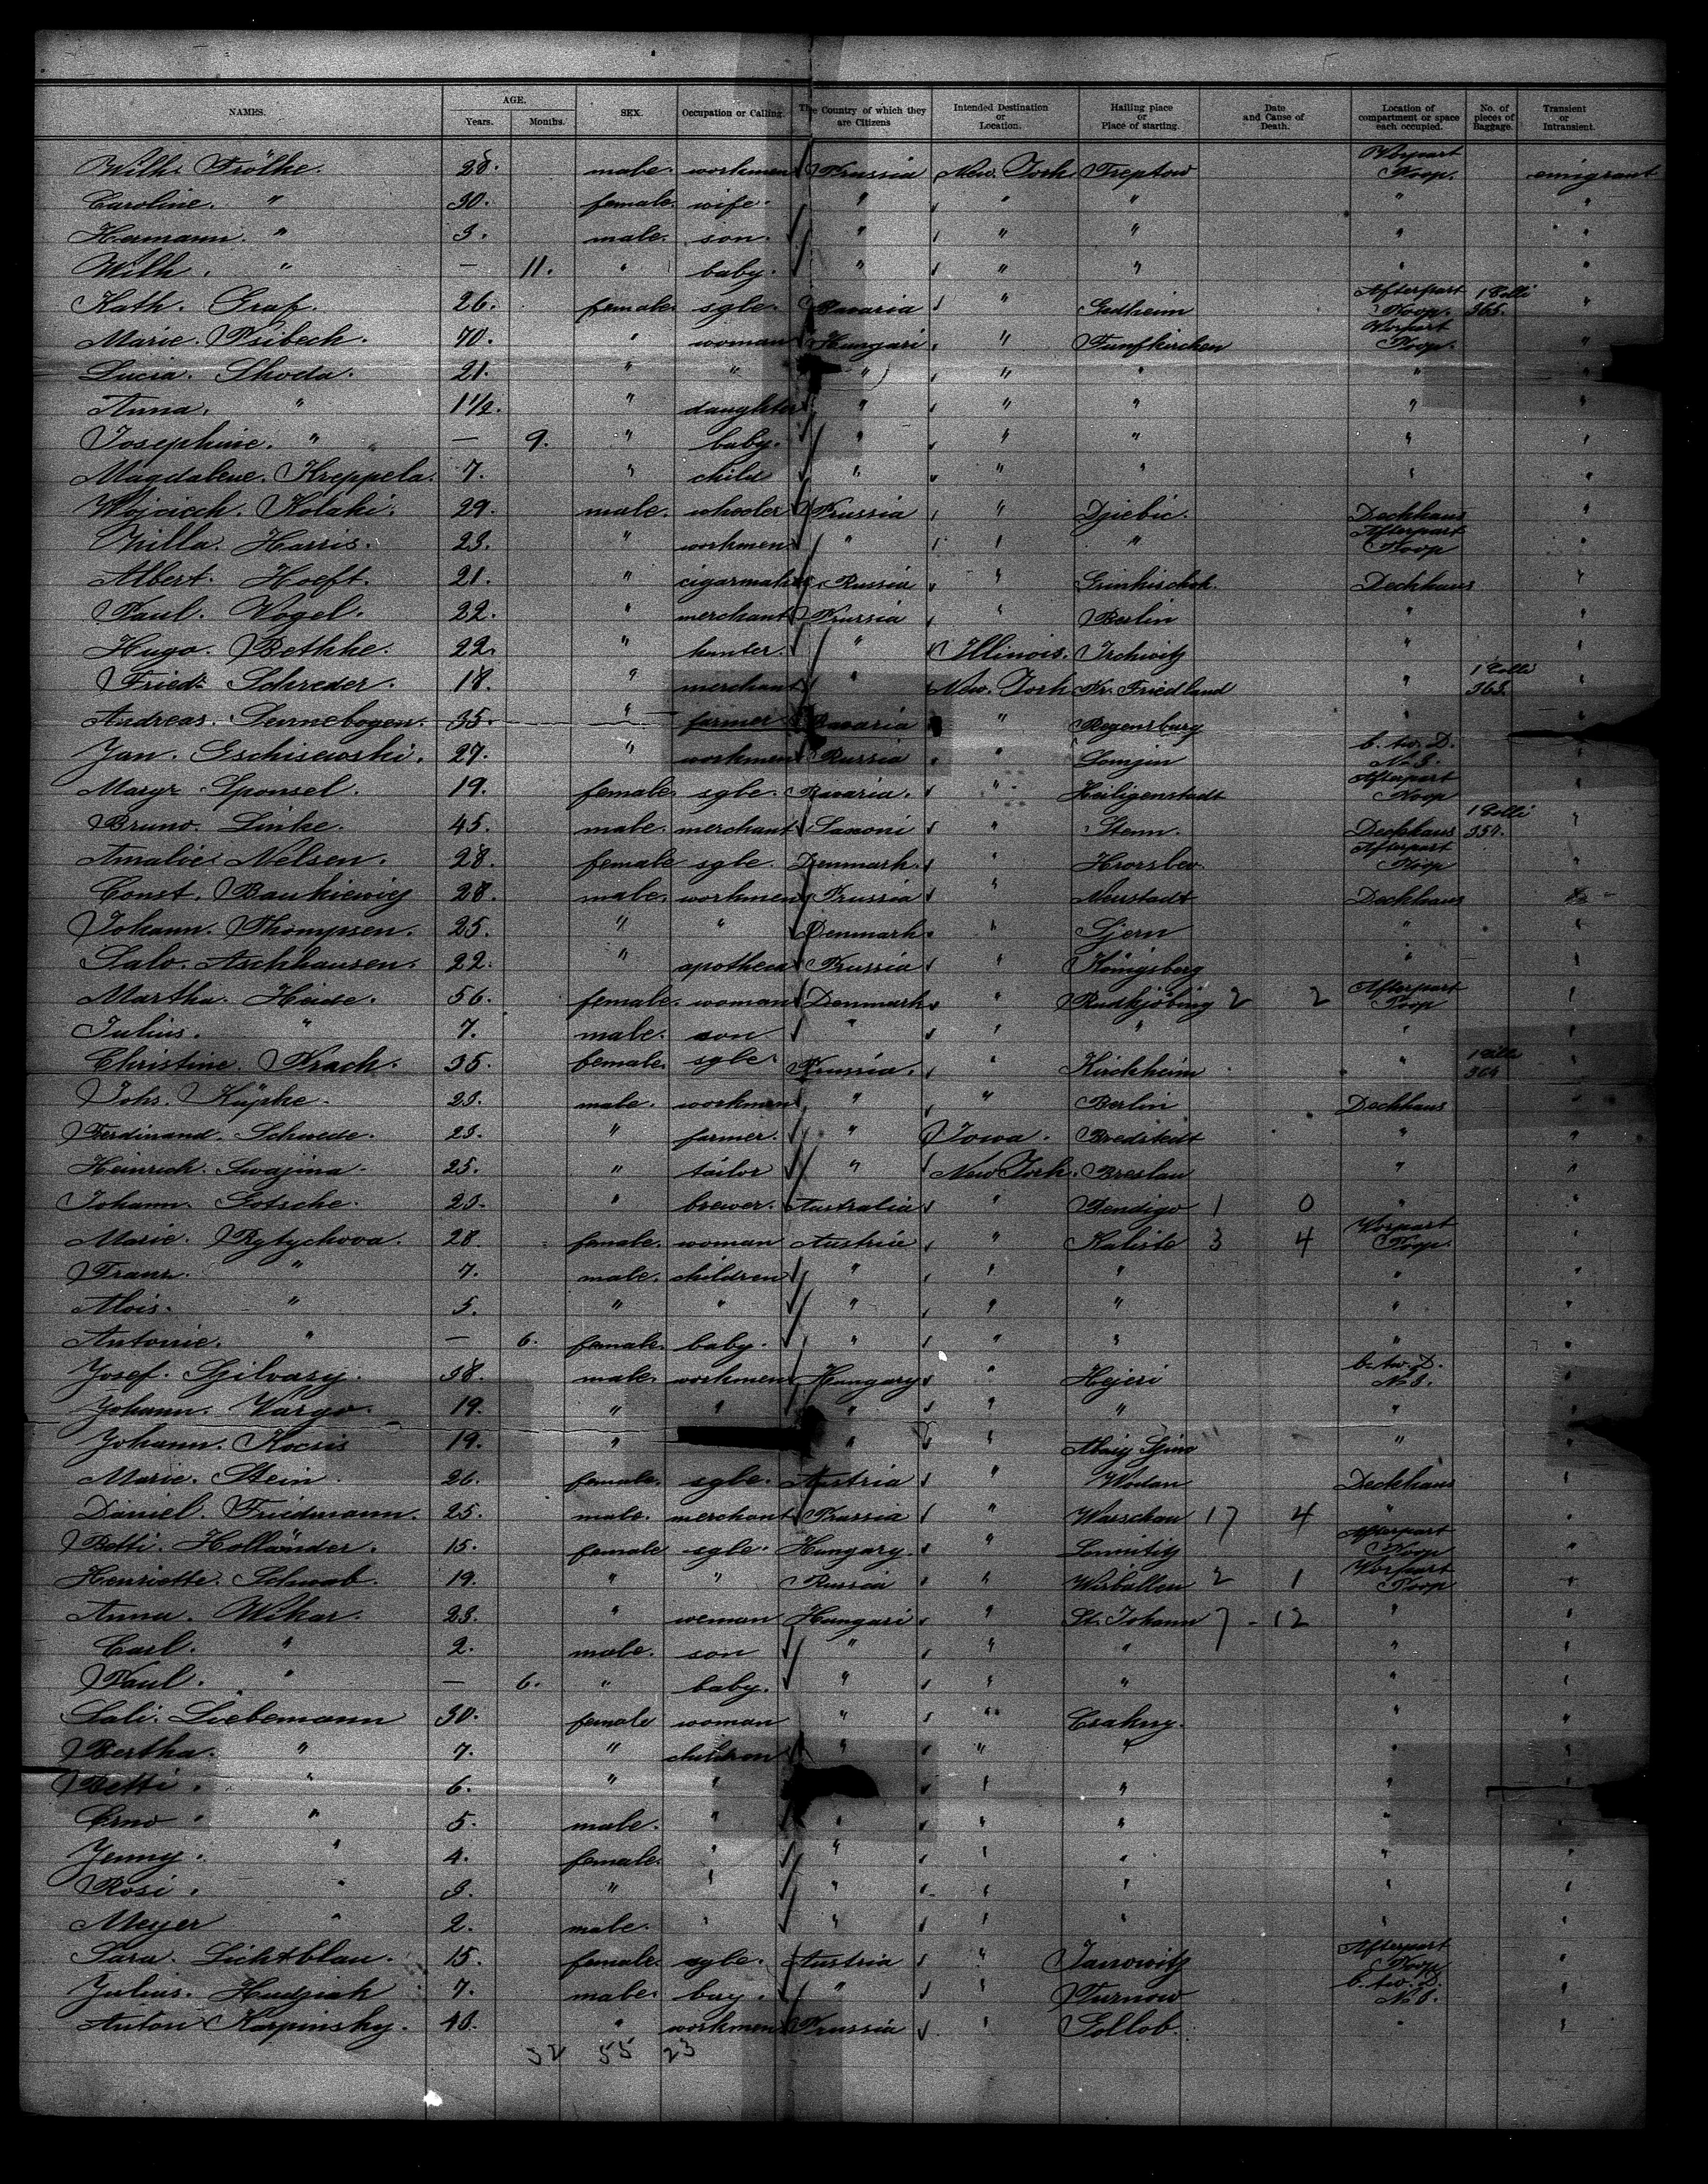 NAMES. AGE. Years. Months. SEX. Occupation or Calling. The Country of which they are Citizens Intended Destination or Location. Hailing place or Place of starting. Date and Cause of Death. Location of compartment or space each occupied. No. of pieces of Baggage. Transient or Intransient.
Wilh. Frölke. 28. male. workmen Prussia New. York Treptow Vorpart Poop. emigrant
Caroline. " 30. female. wife. " " " " "
Hermann. " 3. male. son. " " " " "
Wilh. " — 11. " baby. " " " " "
Kath. Graf. 26. female. sgle. Bavaria " Gadheim Afterpart Poop. 1 Colli 365. "
Marie. Psibech. 70. " woman Hungari " Funfkirchen Vorpart Poop. "
Lucia. Skoda. 21. " " " " " " "
Anna. " 1 1/2. " daughter " " " " "
Josephine. " — 9. " baby. " " " " "
Magdalene. Kreppela. 7. " child " " " " "
Wojcicch. Kolaki. 29. male. wheeler Prussia " Dziebic. Deckhaus "
Harris. 23. " workmen " " " Afterpart Poop
Albert. Hoeft. 21. " cigarmaker Russia " Deckhaus "
Paul. Vogel. 22. " merchant Prussia " Berlin " "
Hugo. Bethke. 22. " hunter. " Illinois. " "
Fried. Schreder. 18. " merchant " New. York Kr. Friedland " 1 Colli 363. "
Andreas. Sennebogen. 35. " farmer Bavaria " Regensburg "
Jan. Gschisewski. 27. " workmen Russia " Lomjin b. tw. D. No 3. "
Margr. Sponsel. 19. female. sgle. Bavaria. " Heiligenstadt Afterpart Poop "
Bruno. Linke. 45. male. merchant Saxoni " Stenn. Deckhaus 1 Colli 354. "
Amalie. Nelsen. 28. female sgle. Denmark. " Afterpart Poop "
Const. 28. male. workmen Prussia " Neustadt Deckhaus
Johann. Thompsen. 25. " " Denmark. " Gjern " "
Salo. Aschhausen. 22. " apotheca Prussia " Königsberg " "
Martha. Heide. 56. female. woman Denmark " Rudkjöbing 2 2 Afterpart Poop "
Julius. " 7. male. son " " " " "
Christine. Prach. 35. female. sgle. Prussia. " Kirchheim " 1 Colli 364 "
Johs. Küpke. 23. male. workmen " " Berlin Deckhaus
Ferdinand. Schwede. 23. " farmer. " Iowa. Bredstedt " "
Heinrich. Swajina. 25. " tailor " New York. Breslau " "
Johann. Gotsche. 23. " brewer. Australia " Bendigo 1 0 " "
Marie. Rytychova. 28. female. woman Austria " Kaliste 3 4 Vorpart Poop. "
Franz. " 7. male. children " " " " "
Alois. " 5. " " " " " " "
Antonie. " — 6. female. baby. " " " " "
Josef. Szilvasy. 38. male. workmen Hungary " Hejeri b. tw. D. No 3. "
Johann. Vargo. 19. " " " " " " "
Johann. Kocsis 19. " " " " "
Marie. Stein 26. female. sgle. Austria " Wodan Deckhaus "
Daniel. Friedmann. 25. male. merchant Russia " Warschau 17 4 " "
Betti. Holländer. 15. female sgle. Hungary. " Afterpart Poop "
Henriette. Schwab. 19. " " Russia " Wirballen 2 1 Vorpart Poop "
Anna. Wikar. 23. " woman Hungari " St. Johann 7 - 12 " "
Carl. " 2. male. son " " " " "
Paul. " — 6. " baby. " " " " "
Sali. Liebemann 30. female woman " " Csakny. " "
Bertha. " 7. " children " " " " "
Betti. " 6. " " " " " "
Erno " 5. male. " " " " " "
Jenny. " 4. female. " " " " " "
Rosi. " 3. " " " " " " "
Meyer " 2. male. " " " " " "
Sara. Lichtblau. 15. female. sgle. Austria " Janowitz Afterpart Poop "
Julius. Hudziak 7. male. boy. " " Turnow b. tw. D. No 3. "
Anton Karpinsky. 43. " workmen Prussia " Gollob. " "
32 55 23